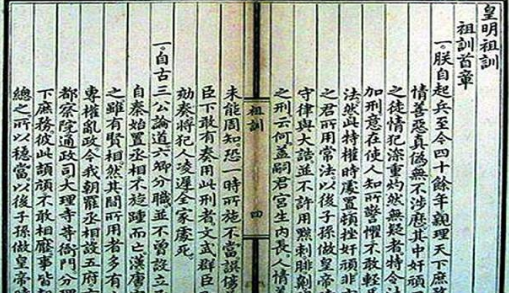 皇明祖訓
祖訓首章
一。朕自起兵至今四十餘年親理天下庶
情善惡真偽無不涉歷其中奸頑
之徒情犯深重灼然無疑者特令
加刑意在使人知所警懼不敢輕
法然此特權時處置頓挫奸頑非
之君所用常法以後子孫做皇帝時
守律與大誥並不許用黥刺腓劓
之刑云何蓋嗣君宮生內長人情善
祖訓 四
未能周知恐一時所施不當誤傷
臣下敢有奏用此刑者文武群臣
劾奏將犯人凌遲全家處死
一。自古三公論道六卿分職並不曾設立
自秦始置丞相不旋踵而亡漢唐
之雖有賢相然其間所用者多有
專權亂政今我朝罷丞相設五府
都察院通政司大理寺等衙門分理
下庶務彼此頡頏不敢相壓事皆朝
總之所以穩當以後子孫做皇帝時